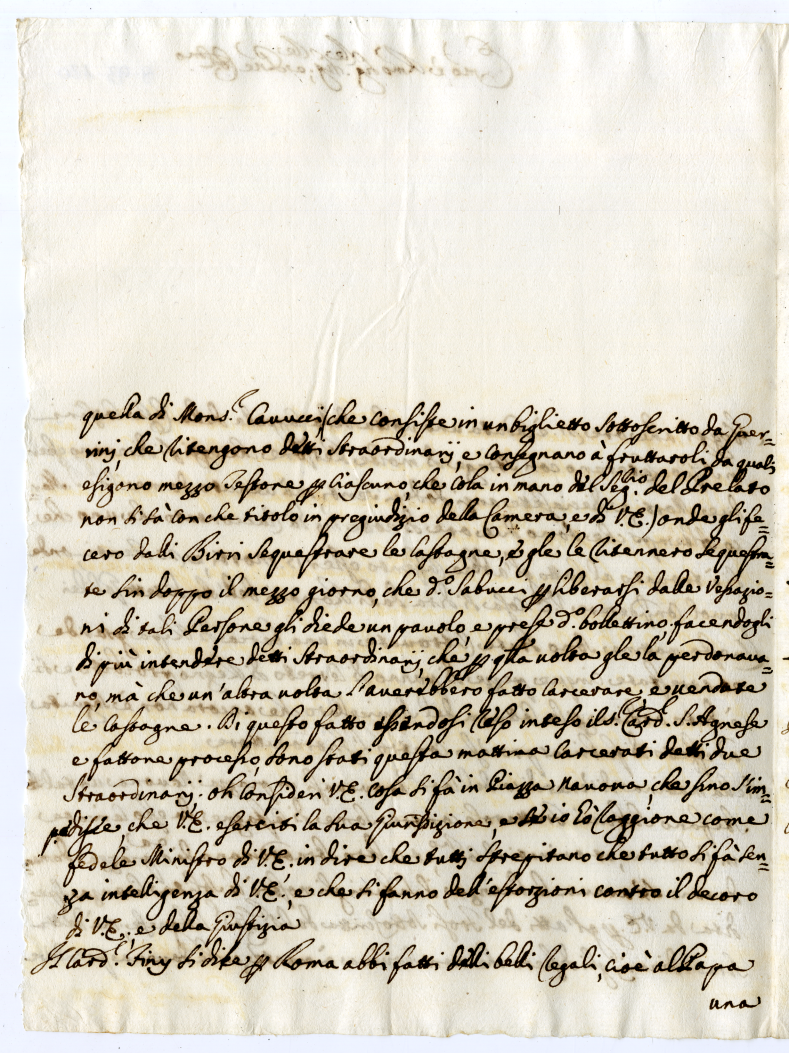 quella di Mons.r Cavucci (che consiste in un biglietto sottoscritto da Guer=
rinj, che ritengono detti Straordinarij, e consegnano à fruttaroli, da quali
esigono mezzo Testone p ciascuno, che cola in mano del Seg.rio del Prelato
non si sà con che titolo in pregiudizio della Camera, e di V.E.) onde gli fe=
cero dalli Birri sequestrare le Castagne, e gle le ritennero sequestra=
te sin doppo il mezzo giorno, che d.o Sabucci p liberarsi dalle Vessazio=
ni di tali Persone gli diede un pauolo, e prese d.o bollettino, facendogli
di più intendere detti Straordinarij, che p q.ta volta gle la perdonava=
no, mà che un'altra volta l'averebbero fatto carcerare, e vendute
le Castagne. Di questo fatto essendosi reso inteso il S.r Card.l S. Agnese
e fattone processo, sono stati questa mattina carcerati detti due
Straordinarij; oh consideri V.E. cosa si fà in Piazza Navona, che sino s'im=
pedisce che V.E. eserciti la sua Giurisdizione, e se io hò raggione come
fedele Ministro di V.E., in dire che tutti strepitano che tutto si fà sen=
za intelligenza di V.E., e che si fanno dell'estorzioni contro il decoro
di V.E., e della Giustizia
Il Card.l Finy si dice p Roma abbi fatti delli belli regali, cioè al Papa
una